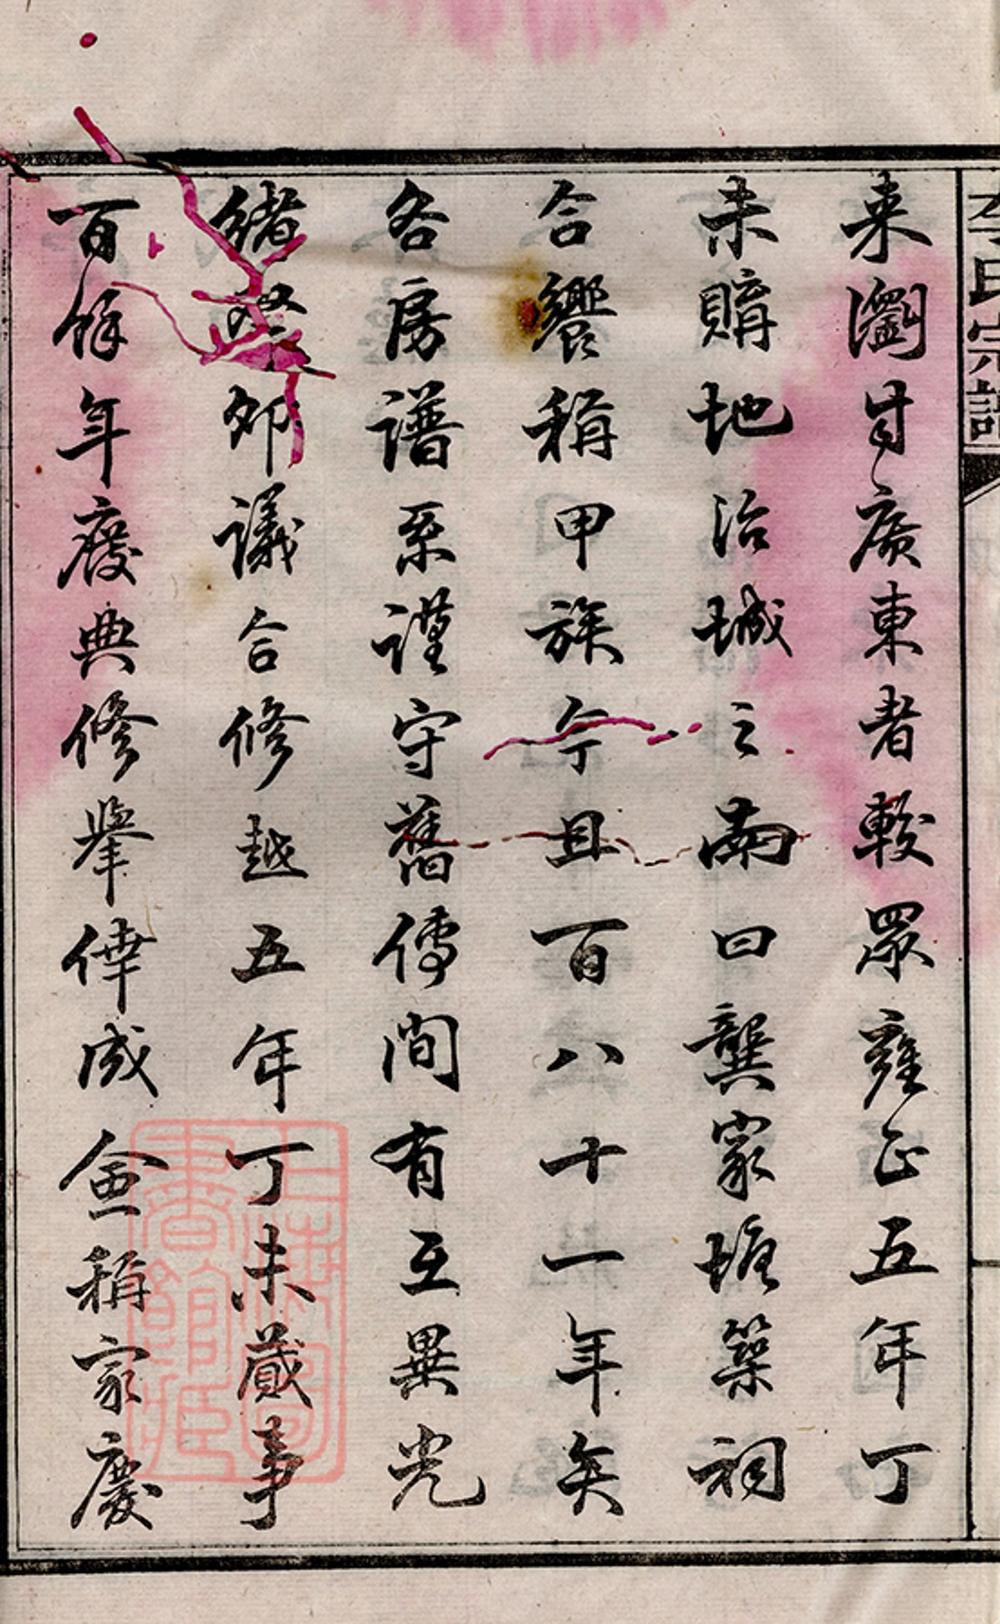 李氏宗譜
来瀏自廣東者較眾雍正五年丁
未購地治城之南曰龔家塘築祠
合饗稱甲族今且百八十一年矣
各房譜系謹守舊傳间有互異光
緒癸卯議合修越五年丁未蕆事
百餘年廢典修舉倖成僉稱家慶
上海圖書館藏